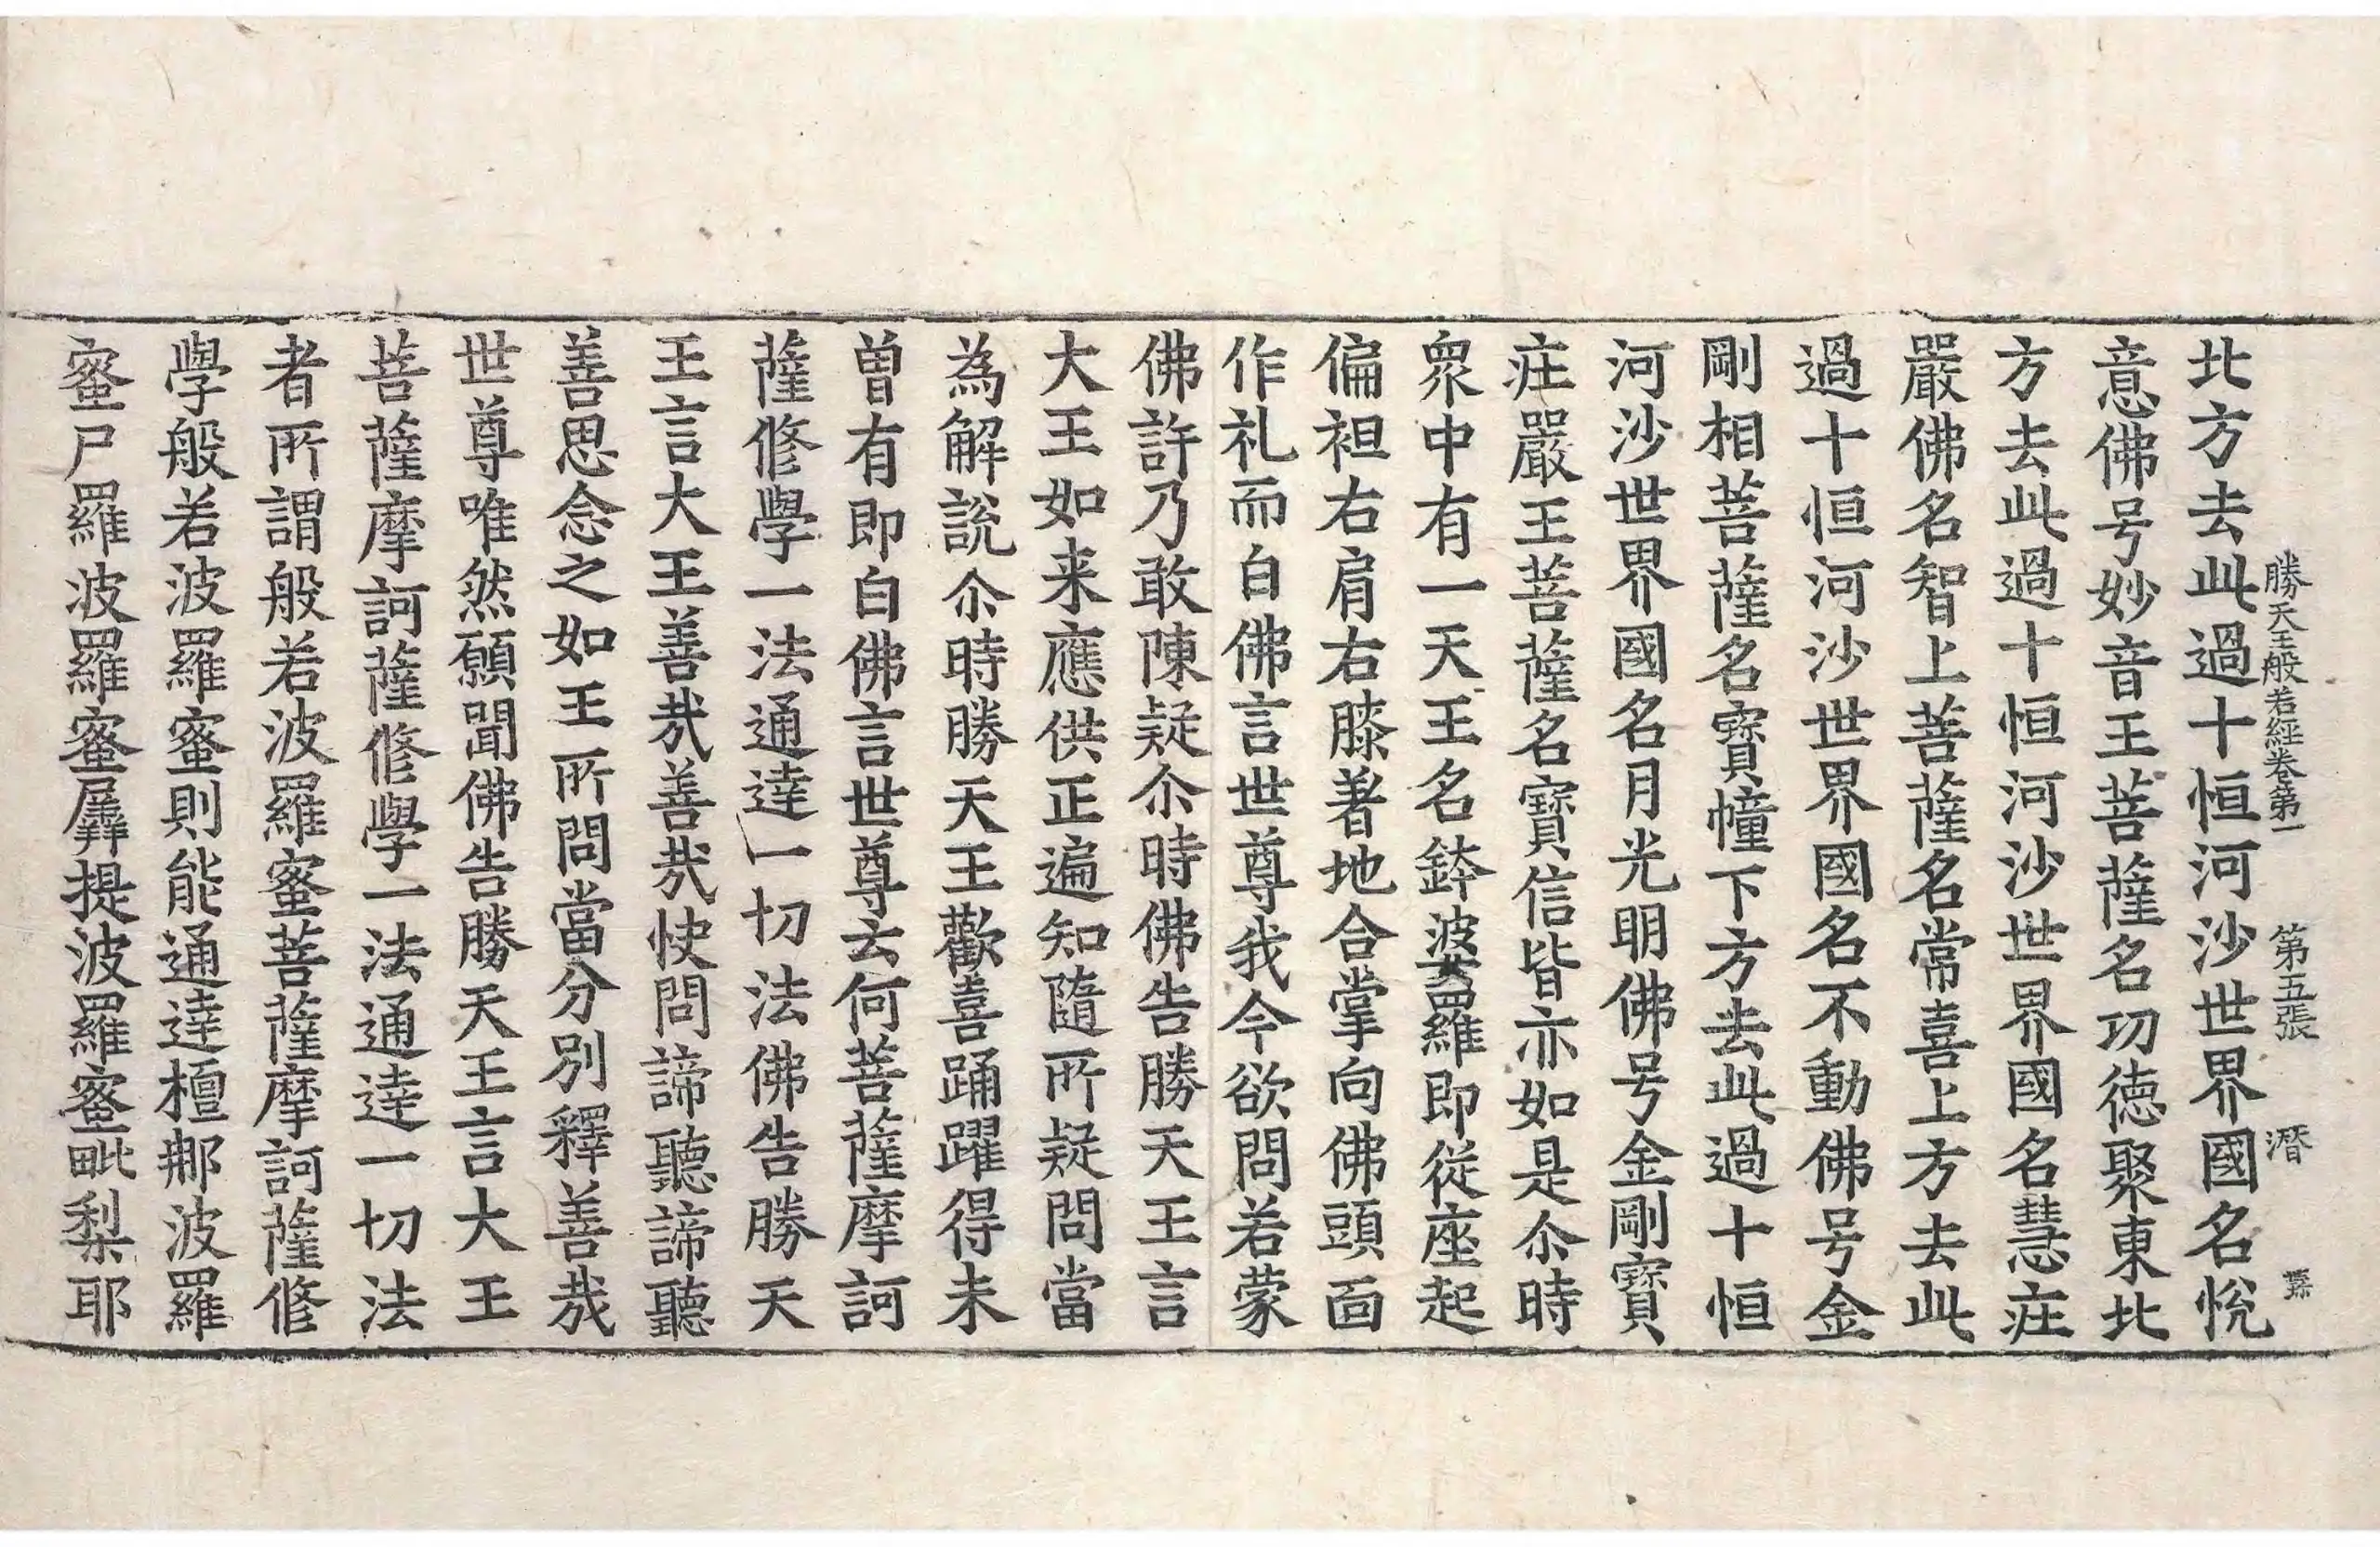 勝天王般若經卷第一 第五張 潛
北方去此過十恒河沙世界國名恱
意佛号妙音王菩薩名功德聚東北
方去此過十恒河沙世界國名慧庄
嚴佛名智上菩薩名常喜上方去此
過十恒河沙世界國名不動佛号金
剛相菩薩名寶幢下方去此過十恒
河沙世界國名月光明佛号金剛寶
庄嚴王菩薩名寶信皆亦如是尒時
衆中有一天王名鉢波婆羅即從座起
偏袒右肩右膝著地合掌向佛頭面
作礼而白佛言世尊我今欲問若蒙
佛許乃敢陳疑尒時佛告勝天王言
大王如来應供正遍知隨所疑問當
為解說尒時勝天王歡喜踊躍得未
曽有即白佛言世尊云何菩薩摩訶
薩修學一法通達一切法佛告勝天
王言大王善哉善哉快問諦聽諦聽
善思念之如王所問當分別釋善哉
世尊唯然願聞佛告勝天王言大王
菩薩摩訶薩修學一法通達一切法
者所謂般若波羅蜜菩薩摩訶薩修
學般若波羅蜜則能通達檀那波羅
蜜尸羅波羅蜜羼提波羅蜜毗梨耶